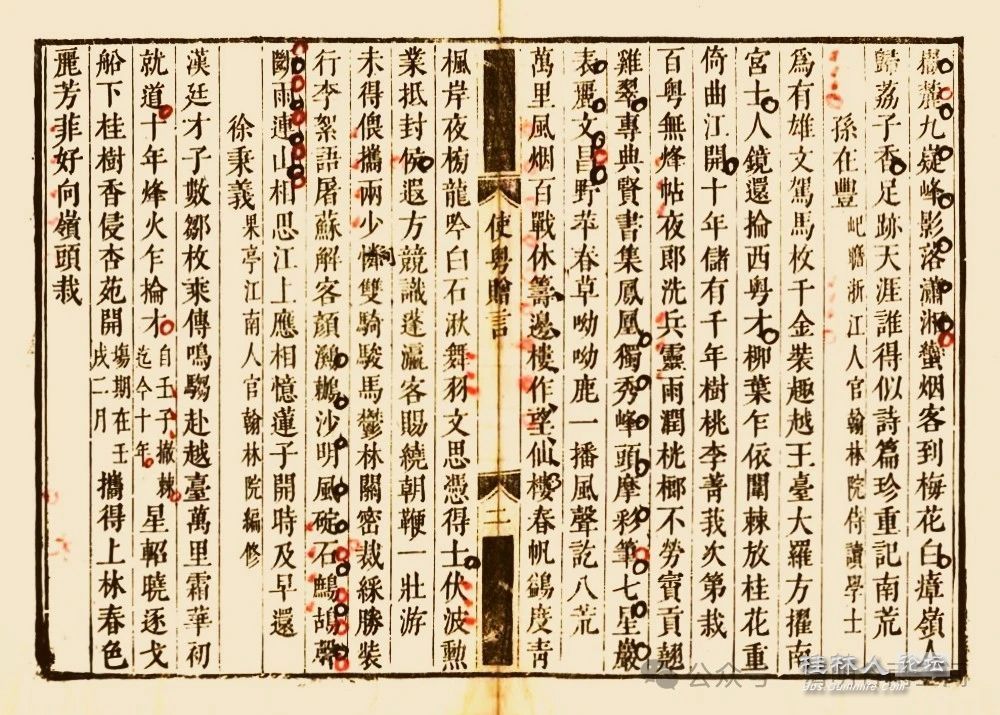 嶽麓九嶷峰影落瀟湘蠻烟客到梅花白瘴嶺人
歸荔子香足跡天涯誰得似詩篇珍重記南荒
孫在豐 屺瞻浙江人官翰林院侍讀學士
爲有雄文駕馬枚千金裝趣越王臺大羅方擢南
宮士人鏡還掄西粵才柳葉乍依闈棘放桂花重
倚曲江開十年儲有千年樹桃李菁莪次第栽
百粵無烽帖夜郎洗兵靈雨潤桄榔不勞賓貢翹
雞翠專典賢書集鳳凰獨秀峰頭摩彩筆七星巖
表麗文昌野苹春草呦呦鹿一播風聲訖八荒
萬里風烟百戰休籌邊樓作望仙樓春帆鷁度青
使粵贈言 二
楓岸夜榜龍吟白石湫舞羽文思憑得士伏波勲
業抵封侯遐方競識蓬瀛客賜繞朝鞭一壯游
未得偎攜兩少憐雙騎駿馬鬱林關密裁綵勝裝
行李絮語屠蘇解客顏鸂鶒沙明風碇石鷓鴣聲
斷雨連山相思江上應相憶蓮子開時及早還
徐秉義 果亭江南人官翰林院編修
漢廷才子數鄒枚乘傳鳴騶赴越臺萬里霜華初
就道十年烽火乍掄才 自壬子撤棘迄今十年 星軺曉逐戈
船下桂樹香侵杏苑開 塲期在壬戌二月 攜得上林春色
麗芳菲好向嶺頭栽
公众号
桂林人论坛